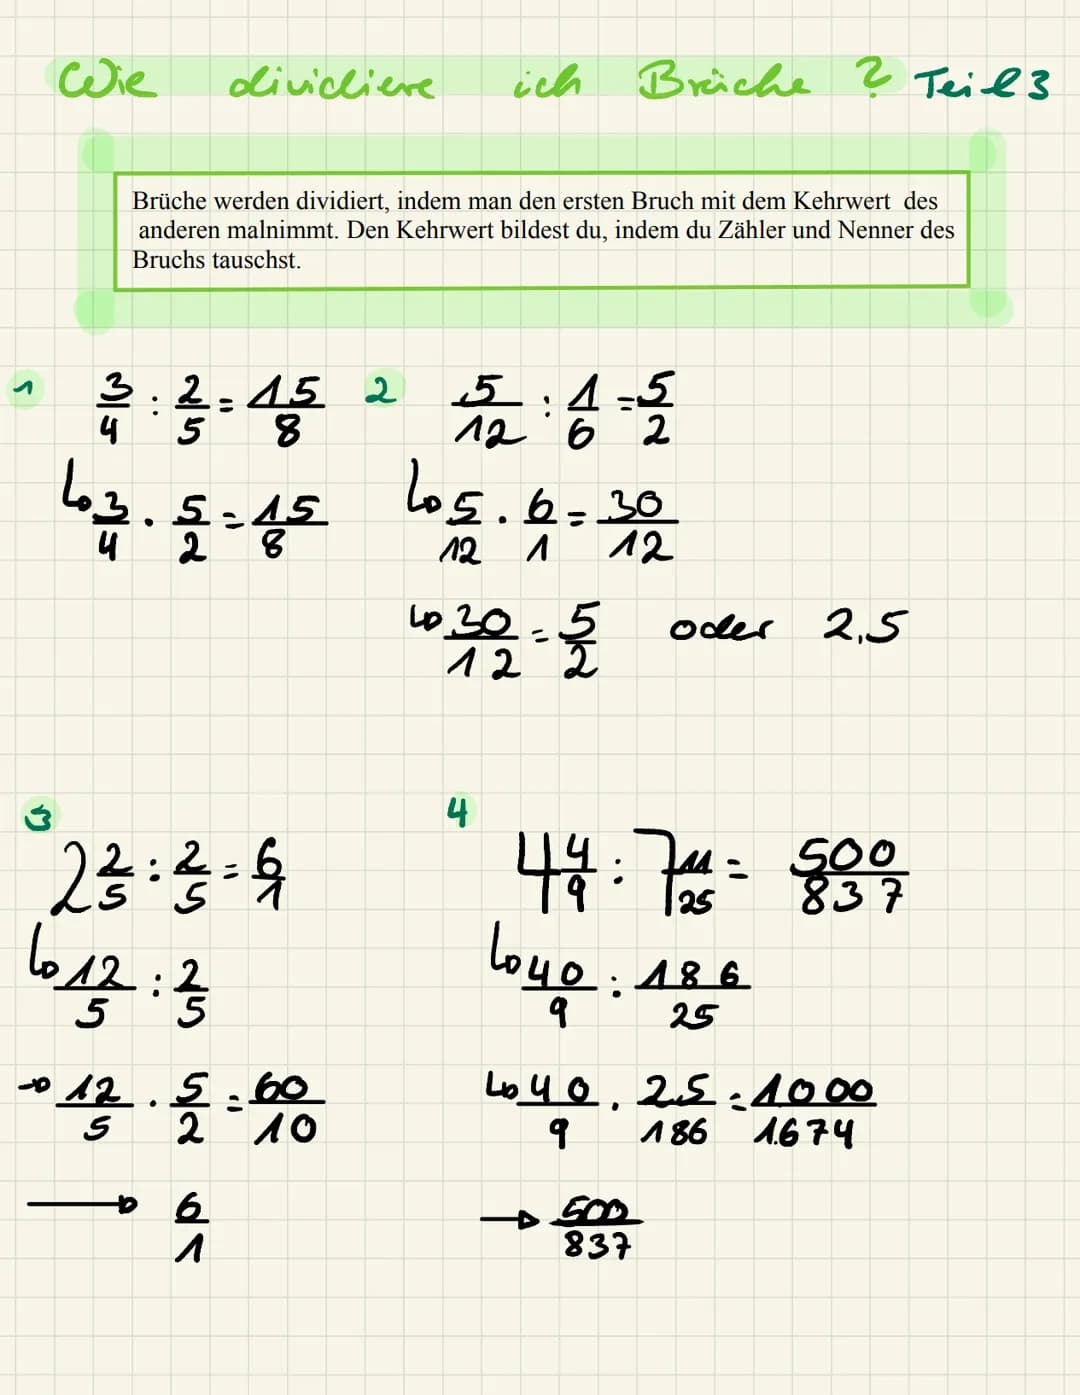 Wie dividiere ich Brüche ? Teil 3
Brüche werden dividiert, indem man den ersten Bruch mit dem Kehrwert des
anderen malnimmt. Den Kehrwert bildest du, indem du Zähler und Nenner des
Bruchs tauschst.
1
3/4 : 2/5 = 15/8
3/4 · 5/2 = 15/8
2
5/12 : 1/6 = 5/2
5/12 · 6/1 = 30/12
30/12 = 5/2 oder 2,5
3
2 2/5 : 2/5 = 6/1
12/5 : 2/5
12/5 · 5/2 = 60/10
6/1
4
4 4/9 : 7 11/25 = 500/837
40/9 : 186/25
40/9 · 25/186 = 1000/1674
500/837